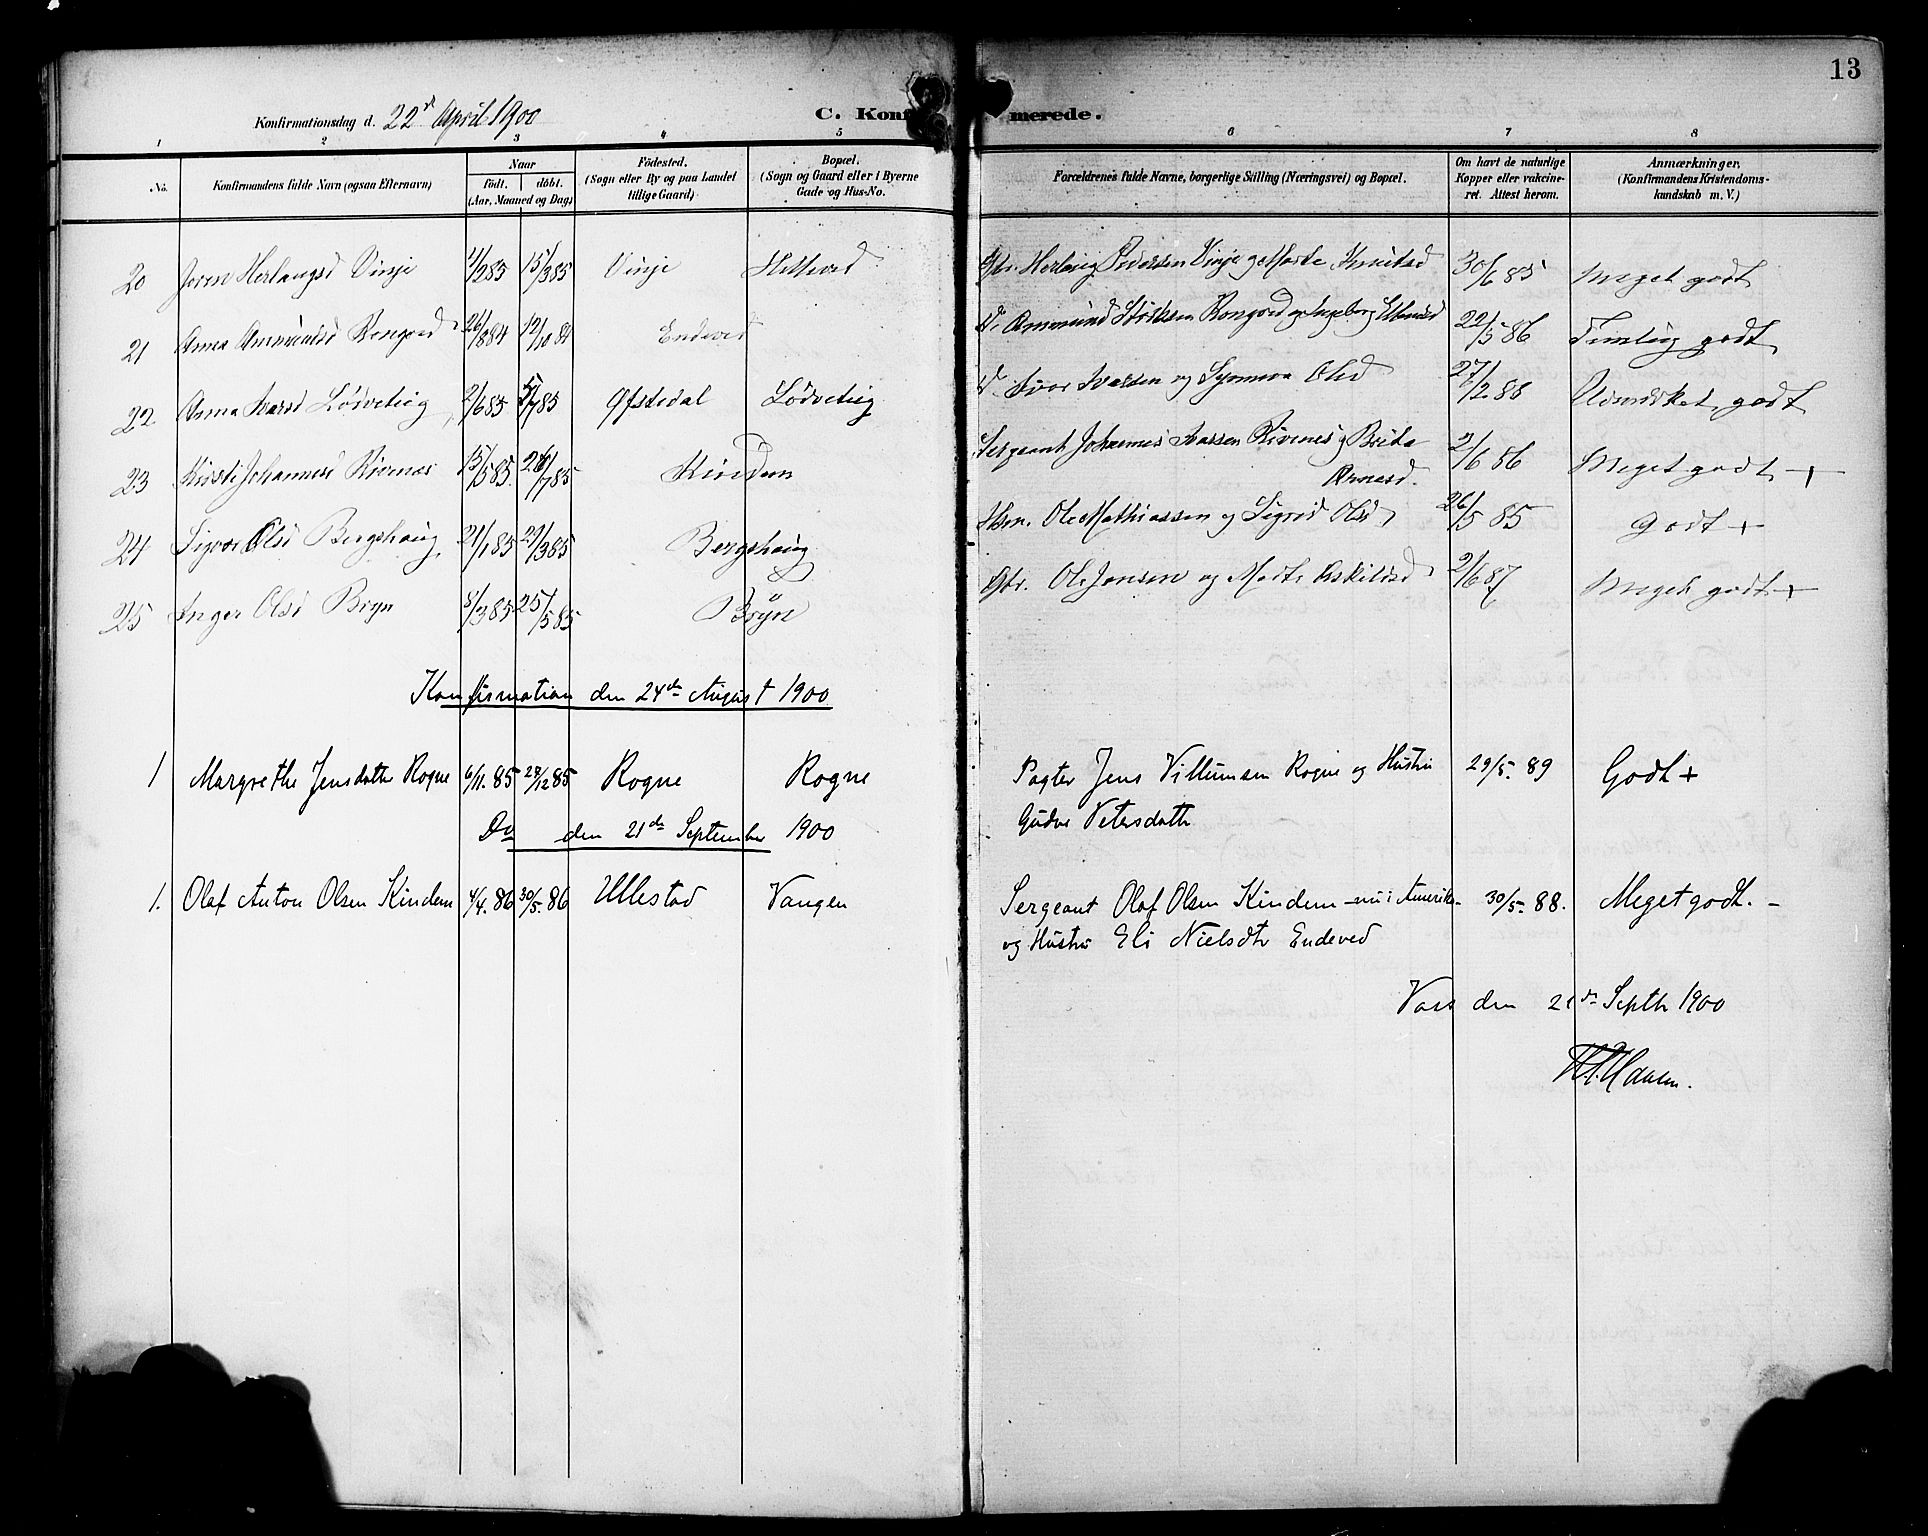 13
Konfirmationsdag d. 22d April 1900
C. Konf merede.
1 2 3 4 5 6 7 8
No. Konfirmandens fulde Navn (ogsaa Efternavn) Naar födt. döbt. (Aar, Maaned og Dag) Födested. (Sogn eller By og paa Landet tillige Gaard) Bopæl. (Sogn og Gaard eller i Byerne Gade og Hus-No. Forældrenes fulde Navne, borgerlige Stilling (Næringsvei) og Bopæl. Om havt de naturlige Kopper eller vakcineret. Attest herom. Anmærkninger. (Konfirmandens Kristendomskundskab m. V.)
20 Joren Herlaugsd Vinje 4/2 85 15/3 85 Vinje Gbr. Herlaug Pedersen Vinje og Marte Knutsd 30/6 85 Meget godt
21 Anna Ammundsd Rongved 26/8 84 12/10 84 Endeved Ammund Rongved og Ingeborg 22/5 86 Temlig godt
22 Anna Ivarsd Lødveteig 2/6 85 5/7 85 Øfstedal Lødveteig Ivar Ivarsen og Synneva Olsd 27/2 86 Udmærket godt
23 Kirsti Johannesd Rivenæs 15/5 85 26/7 85 Kindem Sergeant Johannes Ivarsen Rivenes og Brita 2/6 86 Meget godt +
Arnesd.
24 Olsd Bergshaug 21/1 85 29/3 85 Bergshaug Hsm. Ole Mathiassen og Sigrid Olsd 26/5 85 Godt +
25 Inger Olsd Bryn 8/3 85 25/5 85 Bryn Gbr. Ole Jonsen og Marte Askildsd 2/6 87 Meget godt +
Konfirmation den 24de August 1900
1 Margrethe Jensdatter Rogne 6/11. 85 28/12 85 Rogne Rogne Pagter Jens Villumsen Rogne og Hustru 29/5. 89 Godt +
Gudve Petersdatter
Do den 21de September 1900
1. Olaf Anton Olsen Kindem 4/4. 86 30/5. 86 Ullestad Vangen Sergeant Olaf Olsen Kindem – nu i Amerika – 30/5. 88. Meget godt. –
og Hustru Eli Nielsdtr Endeved
Voss den 21de Septbr 1900